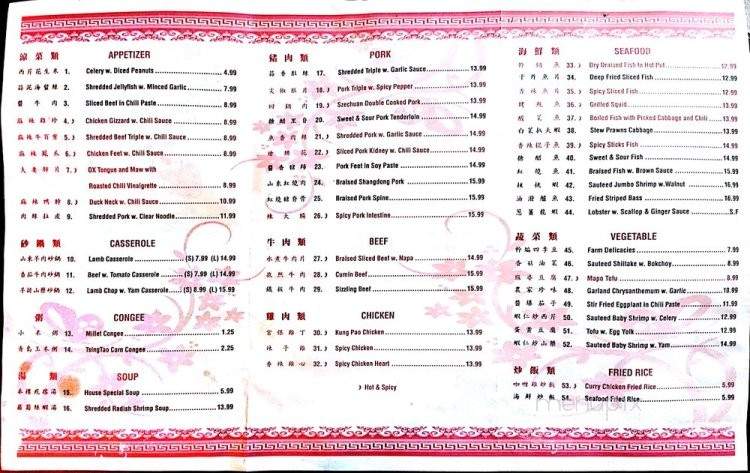 涼菜類 APPETIZER
西芹花生米 1. Celery w. Diced Peanuts 4.99
蒜泥海蜇絲 2. Shredded Jellyfish w. Minced Garlic 7.99
醬牛肉 3. Sliced Beef in Chili Paste 8.99
麻辣雞珍 4. Chicken Gizzard w. Chili Sauce 8.99
麻辣牛百葉 5. Shredded Beef Triple w. Chili Sauce 8.99
麻辣鳳爪 6. Chicken Feet w. Chili Sauce 8.99
夫妻肺片 7. OX Tongue and Maw with
Roasted Chili Vinaigrette 8.99
麻辣鴨脖 8. Duck Neck w. Chili Sauce 10.99
肉絲拉皮 9. Shredded Pork w. Clear Noodle 11.99
砂鍋類 CASSEROLE
山東羊肉砂鍋 10. Lamb Casserole (S) 7.99 (L) 14.99
番茄牛肉砂鍋 11. Beef w. Tomato Casserole (S) 7.99 (L) 14.99
羊排山藥砂鍋 12. Lamb Chop w. Yam Casserole (S) 8.99 (L) 15.99
粥 CONGEE
小米粥 13. Millet Congee 1.25
青島玉米粥 14. TsingTao Corn Congee 2.99
湯類 SOUP
本樓疙瘩湯 15. House Special Soup 5.99
蘿蔔絲蝦湯 16. Shredded Radish Shrimp Soup 13.99
豬肉類 PORK
蒜香肚絲 17. Shredded Triple w. Garlic Sauce 13.99
尖椒肚片 18. Pork Triple w. Spicy Pepper 13.99
回鍋肉 19. Szechuan Double Cooked Pork 13.99
糖醋里脊 20. Sweet & Sour Pork Tenderloin 14.99
魚香肉絲 21. Shredded Pork w. Garlic Sauce 14.99
22. Sliced Pork Kidney w. Chili Sauce 14.99
醬香豬蹄 23. Pork Feet in Soy Paste 14.99
山東紅燒肉 24. Braised Shangdong Pork 15.99
紅燒豬脊骨 25. Braised Pork Spine 15.99
辣大腸 26. Spicy Pork Intestine 15.99
牛肉類 BEEF
水煮牛肉片 27. Braised Sliced Beef w. Napa 14.99
孜然牛肉 28. Cumin Beef 15.99
鐵板牛肉 29. Sizzling Beef 15.99
雞肉類 CHICKEN
宮爆雞丁 30. Kung Pao Chicken 13.99
辣子雞 31. Spicy Chicken 13.99
香辣雞心 32. Spicy Chicken Heart 13.99
Hot & Spicy
海鮮類 SEAFOOD
干鍋魚 33. Dry Braised Fish In Hot Pot 12.99
干炸魚片 34. Deep Fried Sliced Fish 12.99
香辣魚片 35. Spicy Sliced Fish 12.99
烤魷魚 36. Grilled Squid 13.99
酸菜魚 37. Boiled Fish with Picked Cabbage and Chili 13.99
白菜扒大蝦 38. Stew Prawns Cabbage 13.99
39. Spicy Sticks Fish 14.99
糖醋魚 40. Sweet & Sour Fish 14.99
紅燒魚 41. Braised Fish w. Brown Sauce 15.99
核桃蝦 42. Sauteed Jumbo Shrimp w.Walnut 16.99
油潑鱸魚 43. Fried Striped Bass 16.99
蔥薑龍蝦 44. Lobster w. Scallop & Ginger Sauce S.F
蔬菜類 VEGETABLE
干煸四季豆 45. Farm Delicacies 7.99
香菇油菜 46. Sauteed Shiitake w. Bokchoy 7.99
麻婆豆腐 47. Mapo Tofu 8.99
48. Garland Chrysanthemum w. Garlic 8.99
醬爆茄子 49. Stir Fried Eggplant in Chili Paste 11.99
蝦仁炒西芹 50. Sauteed Baby Shrimp w. Celery 12.99
蛋黄豆腐 51. Tofu w. Egg Yolk 12.99
蝦仁炒山藥 52. Sauteed Baby Shrimp w. Yam 14.99
炒飯類 FRIED RICE
咖喱雞炒飯 53. Curry Chicken Fried Rice 5.99
海鮮炒飯 54. Seafood Fried Rice 8.99
menupix